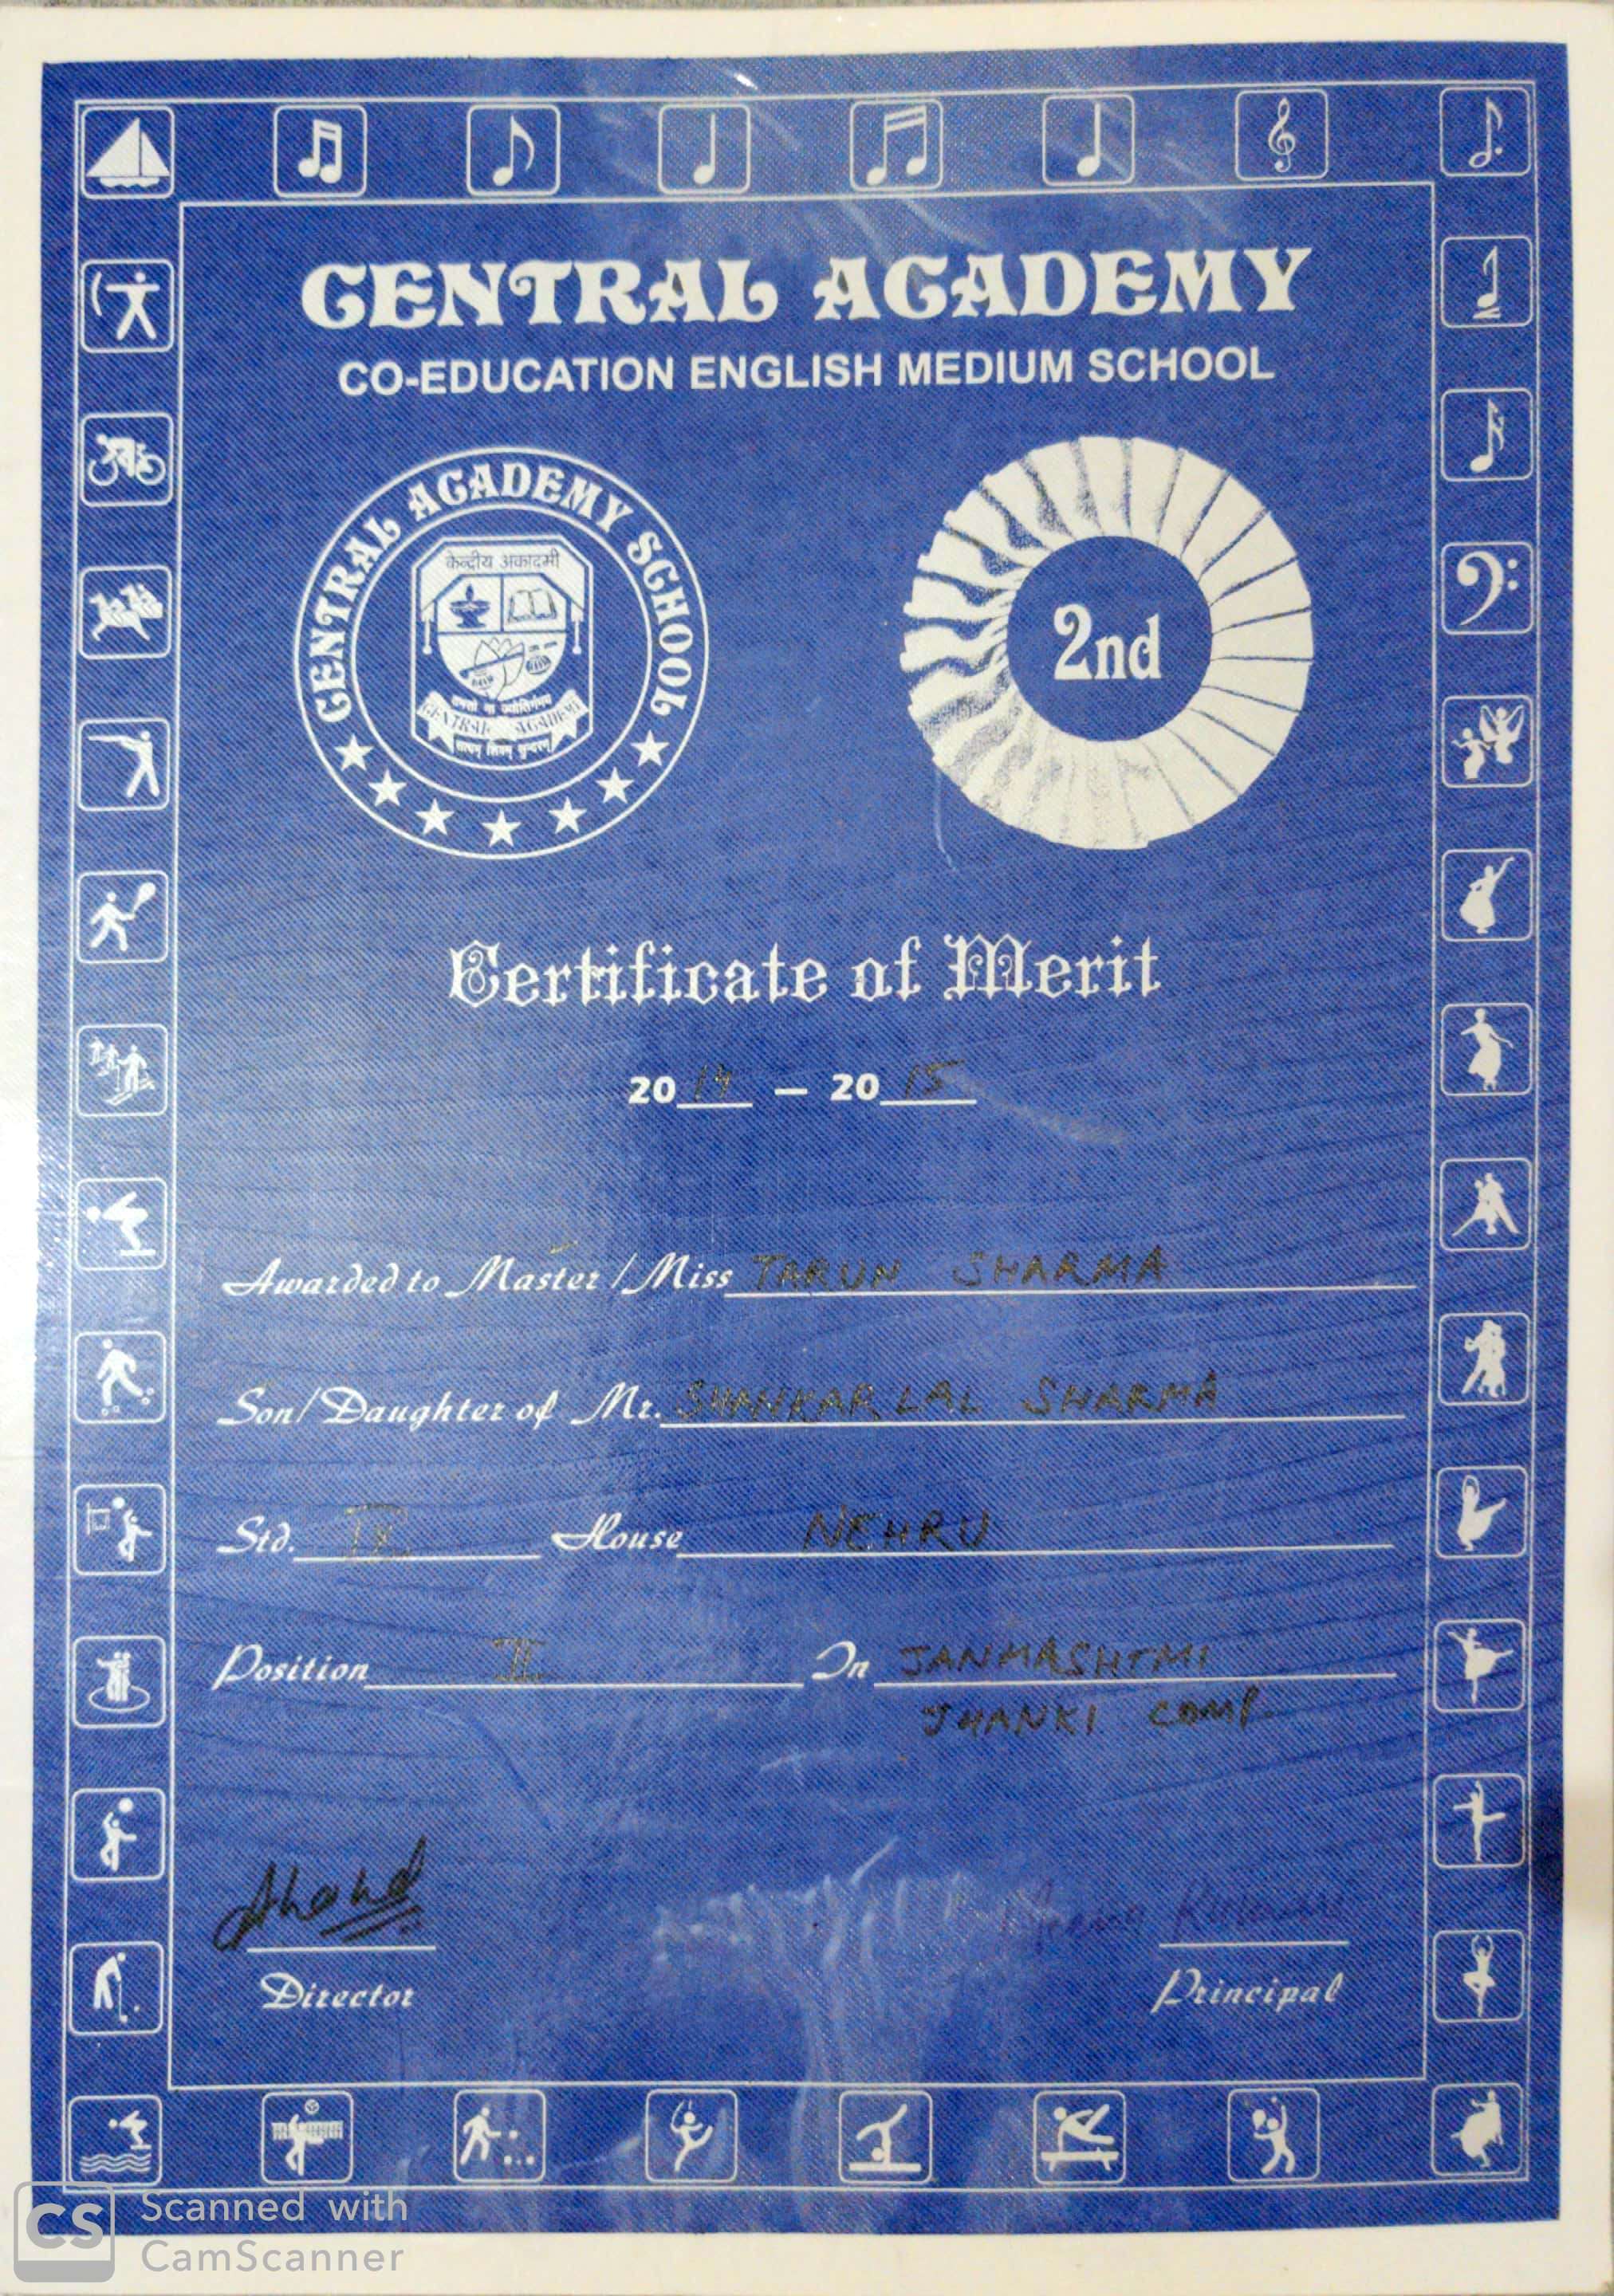 CENTRAL ACADEMY
CO-EDUCATION ENGLISH MEDIUM SCHOOL
CENTRAL ACADEMY SCHOOL
केन्द्रीय अकादमी
तमसो मा ज्योतिर्गमय
CENTRAL ACADEMY
सत्यम् शिवम् सुन्दरम्
2nd
Certificate of Merit
2014 – 2015
Awarded to Master / Miss TARUN SHARMA
Son/Daughter of Mr. SHANKAR LAL SHARMA
Std. IX House NEHRU
Position II In JANMASHTMI
JHANKI COMP.
Director Principal
CS Scanned with
CamScanner